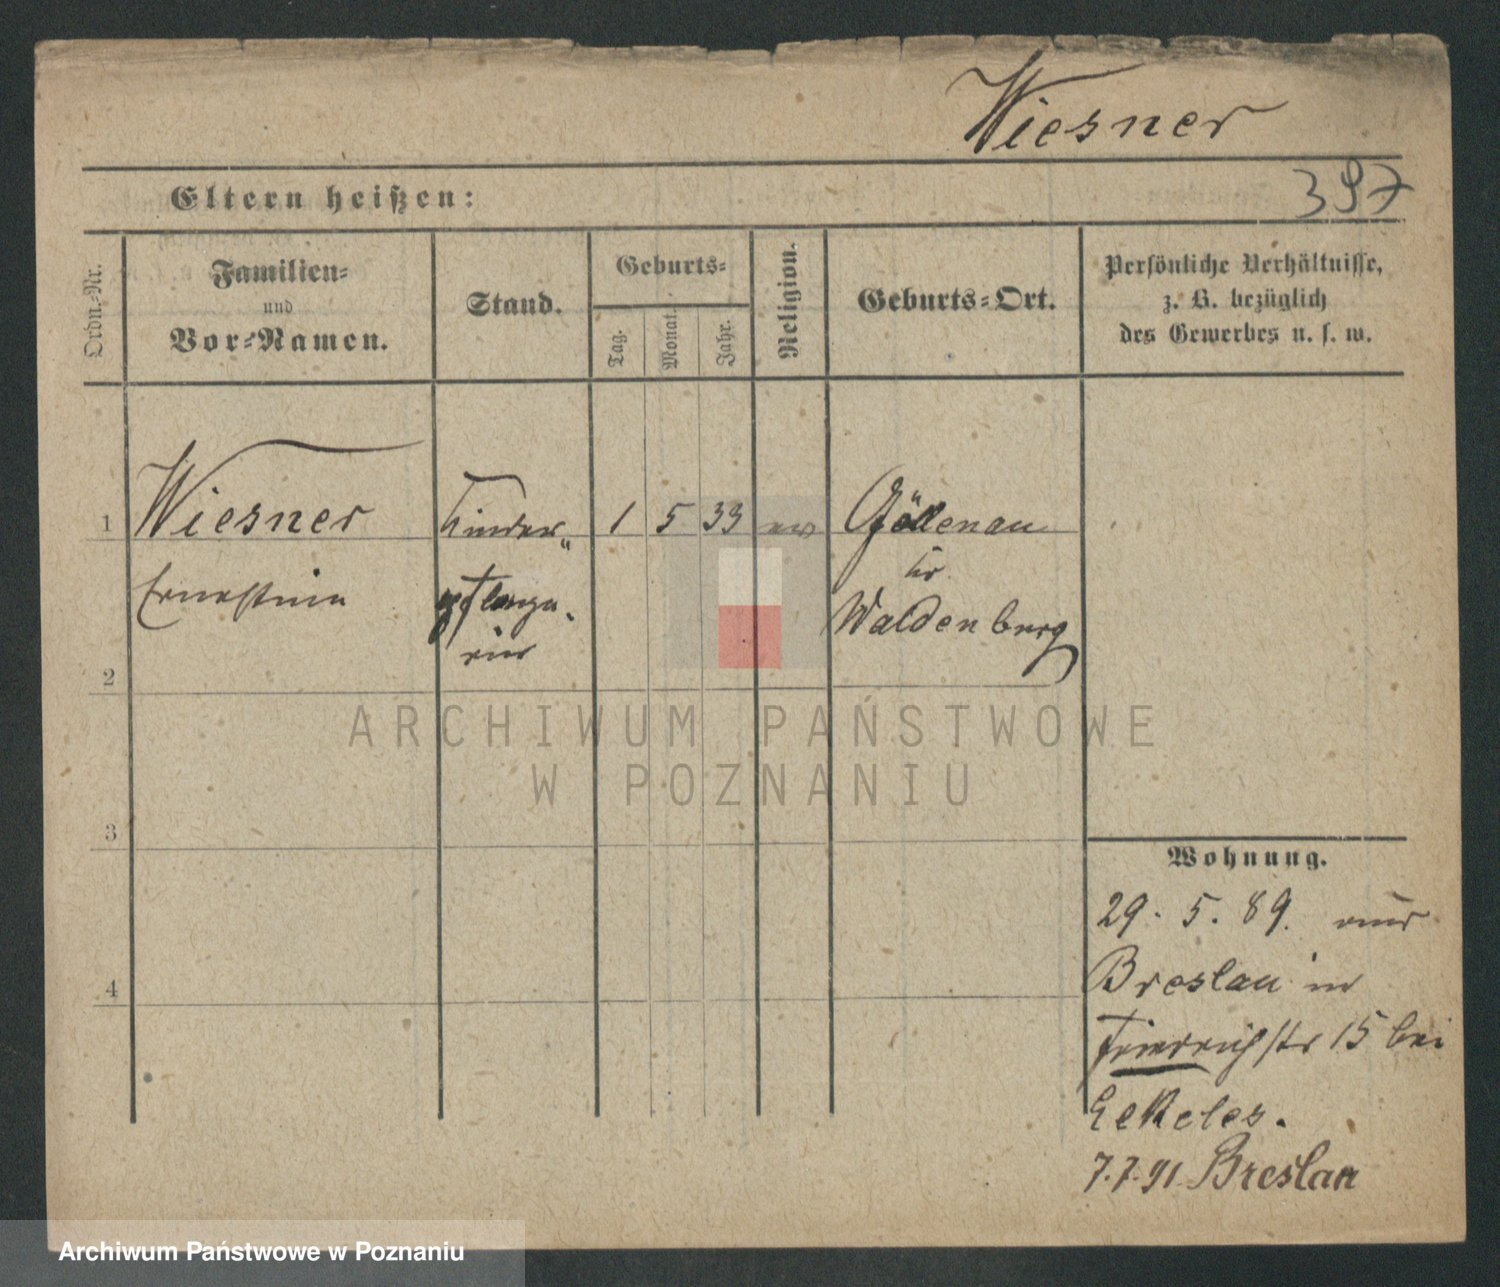 Wiesner
397
Eltern heißen:
Ordn.-Nr.
Familien-
und
Vor-Namen.
Stand.
Geburts-
Tag.
Monat.
Jahr.
Religion.
Geburts-Ort.
Persönliche Verhältnisse,
z. B. bezüglich
des Gewerbes u. s. w.
1
Wiesner
Kinder-
1 5 33
ev
Göllenau
Ernestine
pflege-
rin
Kr
Waldenburg
2
ARCHIWUM PAŃSTWOWE
W POZNANIU
3
Wohnung.
29. 5. 89. aus
Breslau in
Friedrichstr 15 bei
Eckeles.
7.7.91 Breslau
4
Archiwum Państwowe w Poznaniu